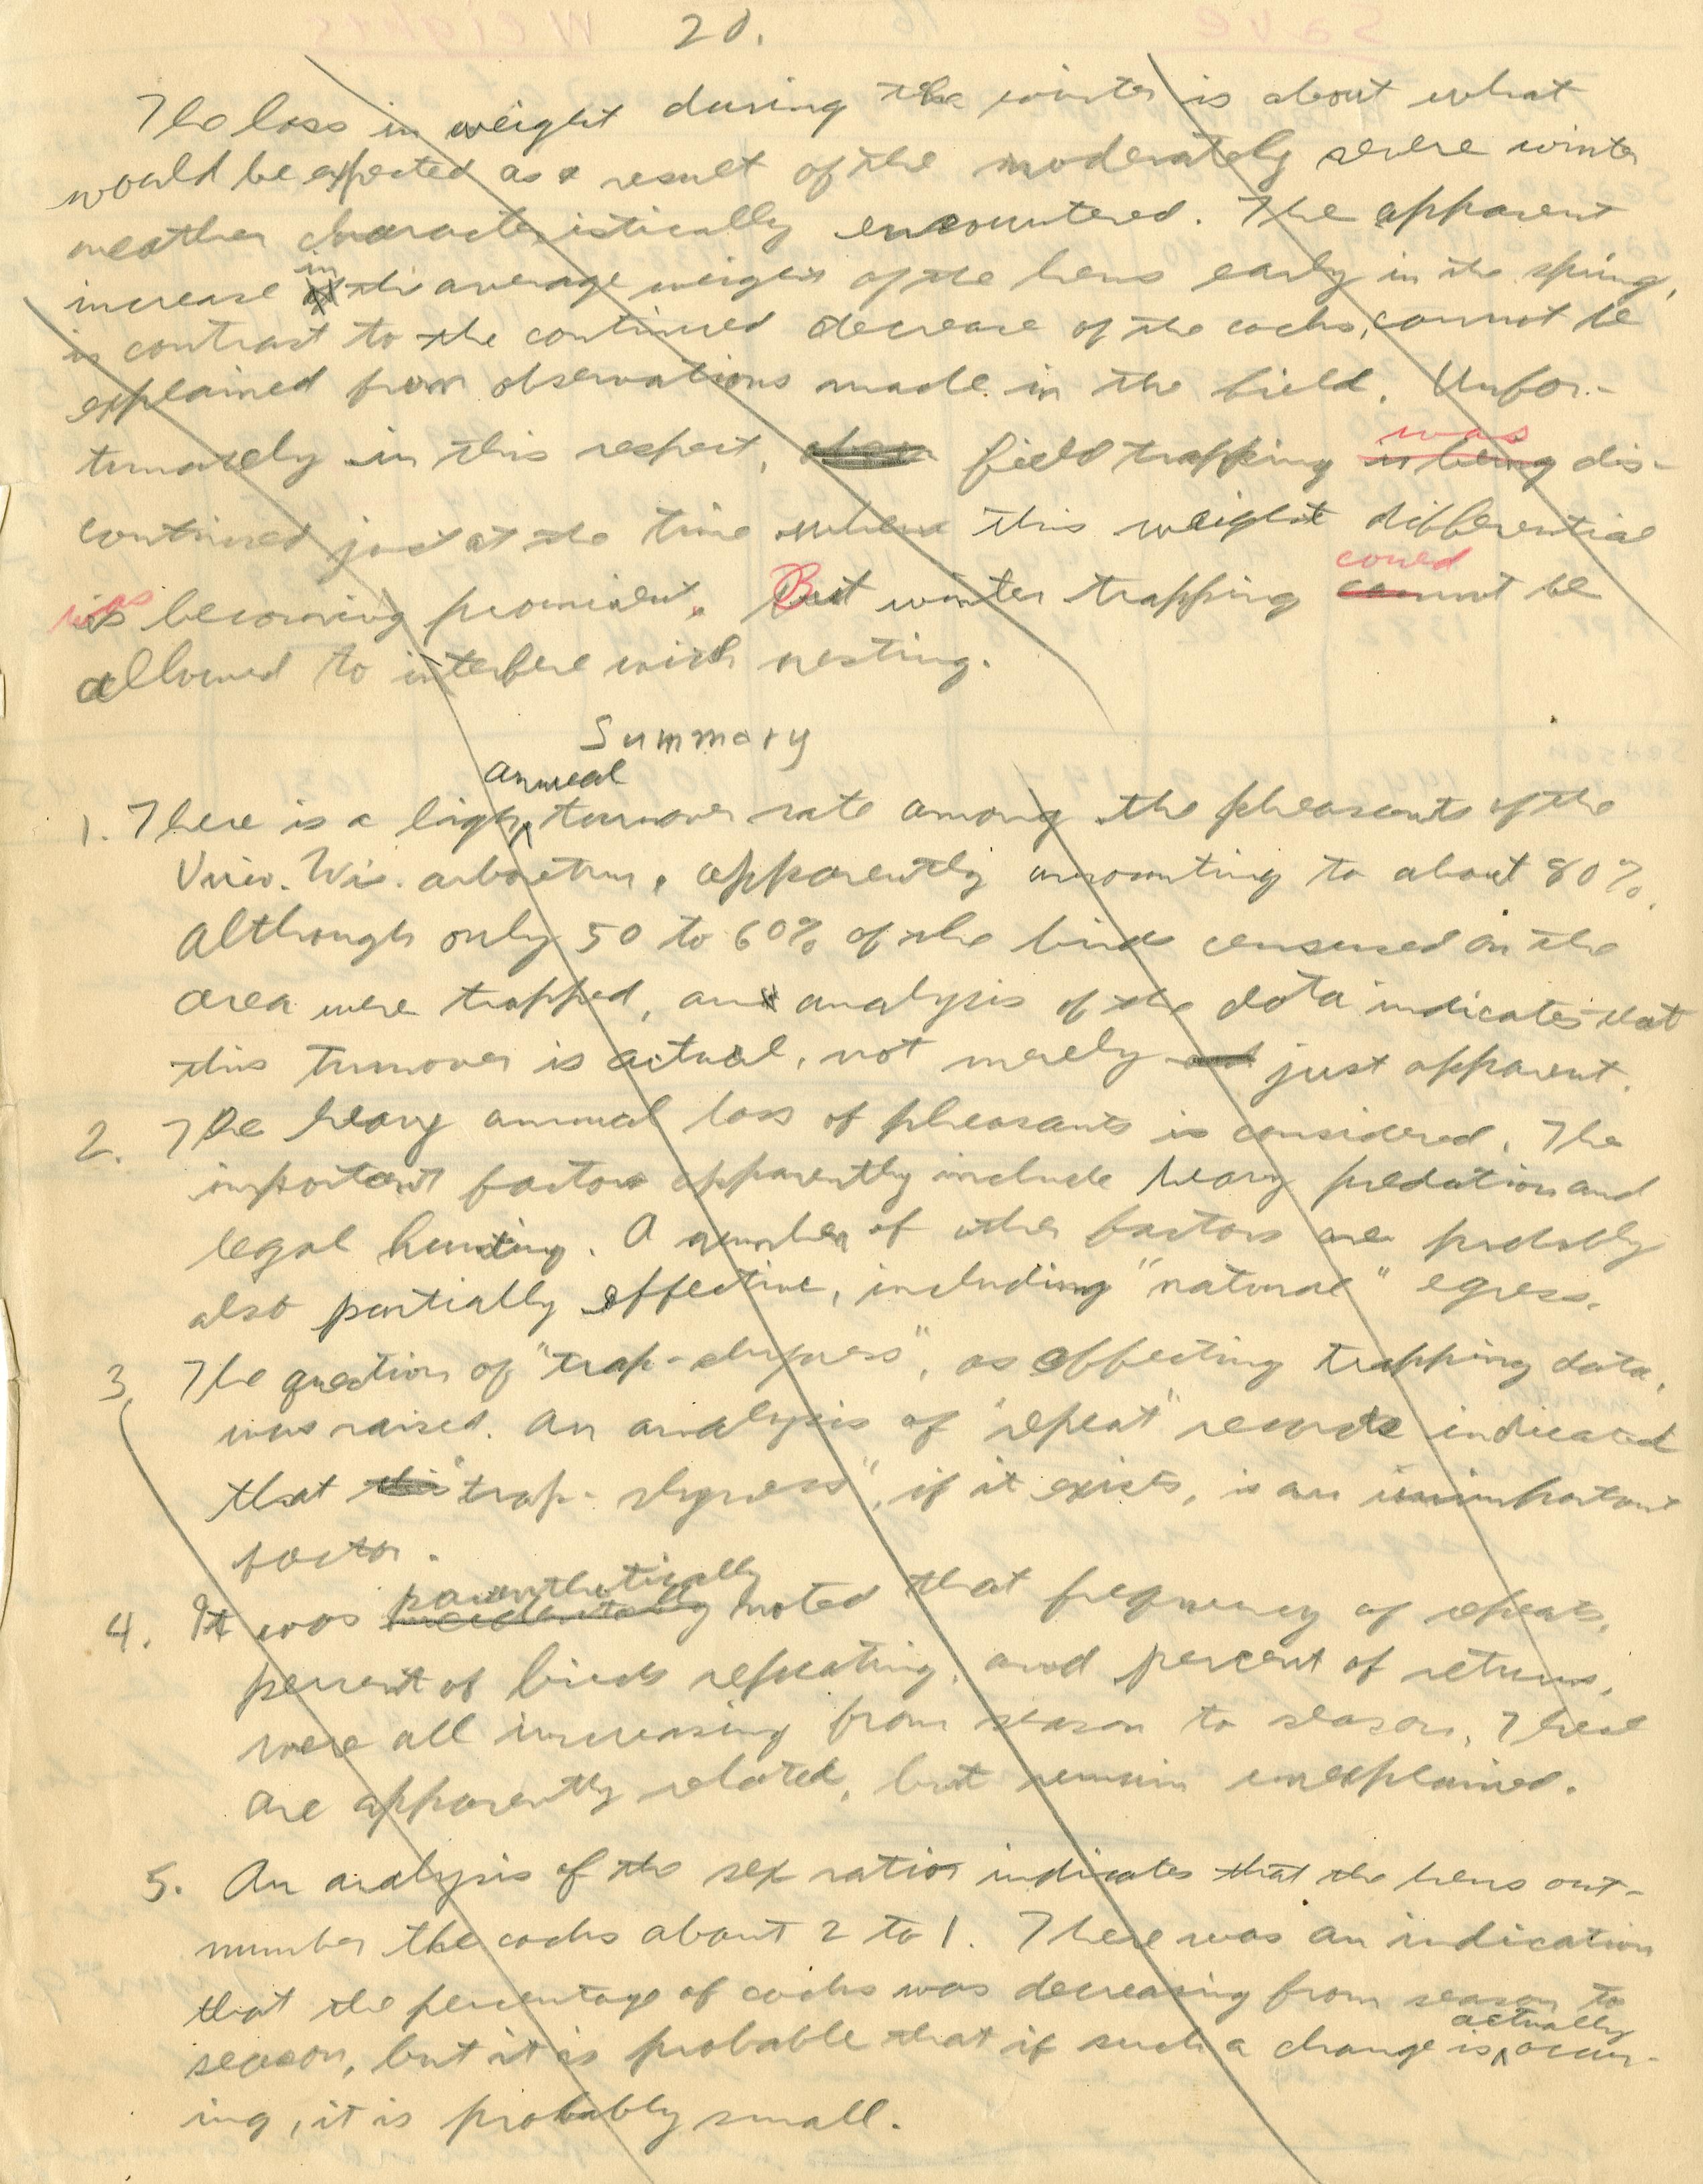 20.
The loss in weight during the winter is about what
would be expected as a result of the moderately severe winter
weather characteristically encountered. The apparent
increase in the average weights of the hens early in the spring,
in contrast to the continued decrease of the cocks, cannot be
explained from observations made in the field. Unfor-
tunately in this respect, field trapping is being was dis-
continued just at the time when this weight differential
was becoming prominent. But winter trapping could not be
allowed to interfere with nesting.
Summary
1. There is a high annual turnover rate among the pheasants of the
Univ. Wis. arboretum, apparently amounting to about 80%.
Although only 50 to 60% of the birds censused on the
area were trapped, an analysis of the data indicates that
this turnover is actual, not merely just apparent.
2. The heavy annual loss of pheasants is considered. The
important factors apparently include heavy predation and
legal hunting. A number of other factors are probably
also partially effective, including "natural" egress.
3. The question of "trap-shyness", as affecting trapping data,
was raised. An analysis of "repeat" records indicated
that this "trap-shyness", if it exists, is an unimportant
factor.
4. It was incidentally parenthetically noted that frequency of repeats,
percent of birds repeating, and percent of returns,
were all increasing from season to season. These
are apparently related, but remain unexplained.
5. An analysis of the sex ratios indicates that the hens out-
number the cocks about 2 to 1. There was an indication
that the percentage of cocks was decreasing from season to
season, but it is probable that if such a change is actually occur-
ing, it is probably small.